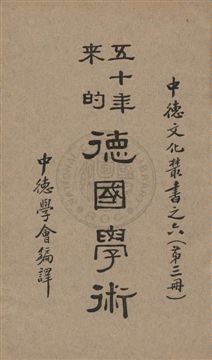 中德文化叢書之六（第三冊）
五十年来的
德國學術
中德學會編譯